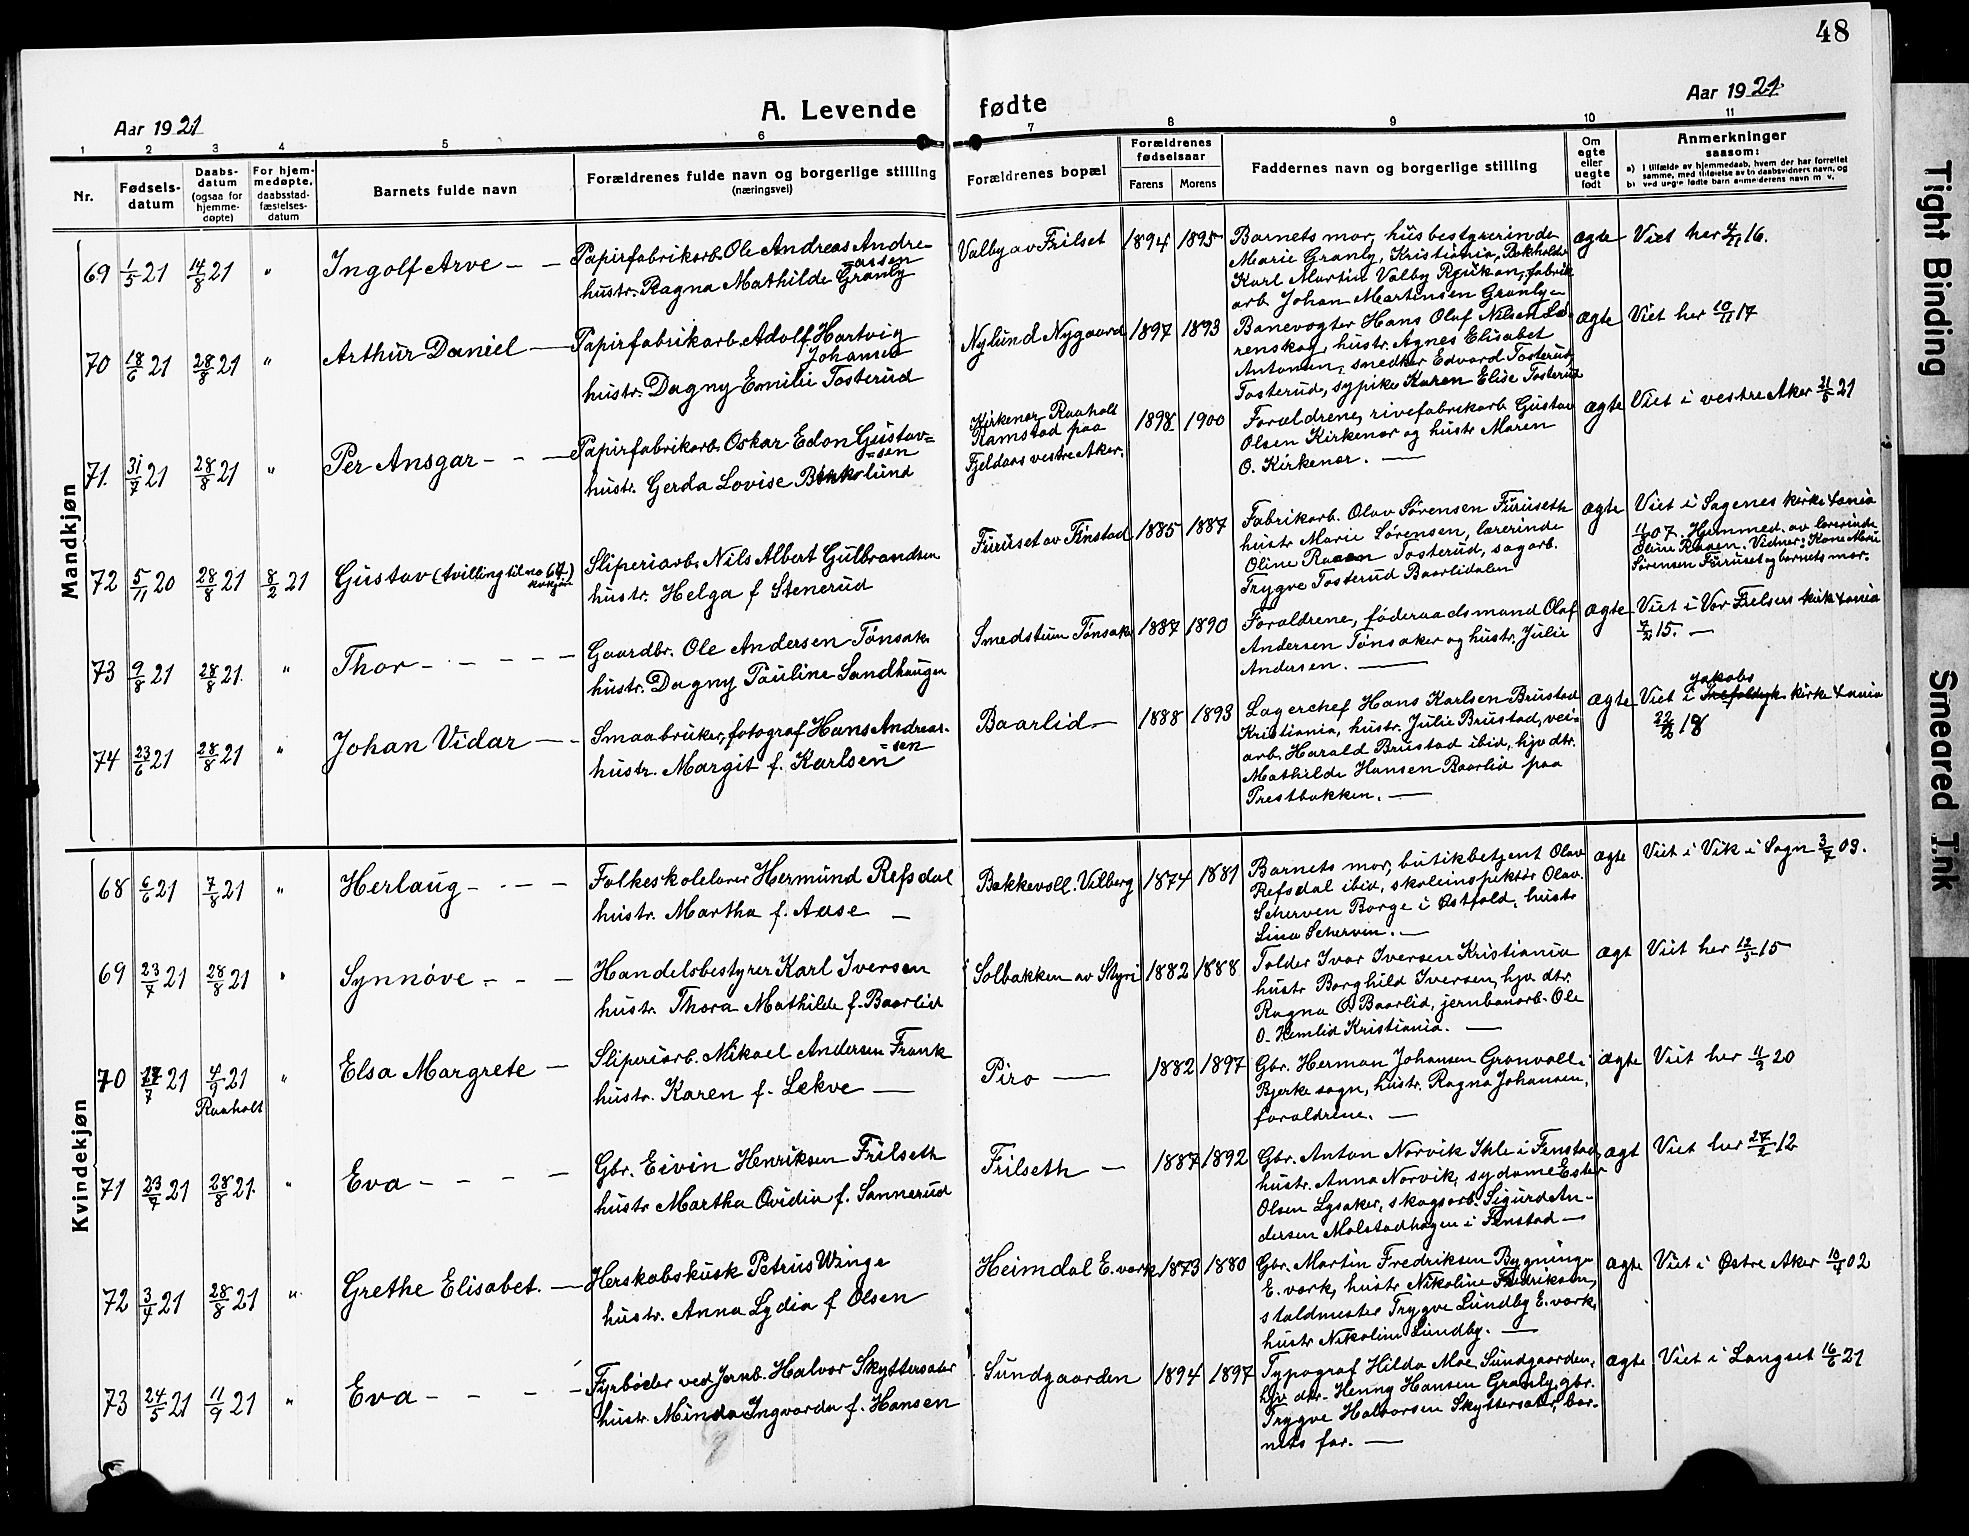 48
Aar 1921
A. Levende fødte
Aar 1921
1 2 3 4 5 6 7 8 9 10 11
Nr.
Fødsels-datum
Daabs-datum (ogsaa for hjemme-døpte)
For hjem-medøpte, daabsstad-fæstelses-datum
Barnets fulde navn
Forældrenes fulde navn og borgerlige stilling
(næringsvei)
Forældrenes bopæl
Forældrenes fødselsaar
Farens Morens
Faddernes navn og borgerlige stilling
Om egte eller uegte født
Anmerkninger
saasom:
a) i tilfælde av hjemmedaab, hvem der har forrettet
samme, med tilføielse av to daabsvidners navn, og
b) ved uegte fødte barn anmelderens navn m. v.
Mandkjøn
69 1/5 21 14/8 21 " Ingolf Arve
Papirfabrikarb. Ole Andreas Andre-
=assen
hustr. Ragna Mathilde Granly
Valby av Frilset 1894 1895
Barnets mor, husbestyrerinde
Marie Granly, Kristiania, Bokholder
Karl Martin Valby Rjukan, fabrik
arb. Johan Martinsen Granly
ægte Viet her 16.
70 18/6 21 28/8 21 " Arthur Daniel
Papirfabrikarb. Adolf Hartvig
Johansen
hustr. Dagny Emilie Tosterud
Nylund Nygaard 1897 1893
Banevogter Hans Olaf Nilsen Lø-
renskog, hustr. Agnes Elisabet
Antonsen, snedker Edvard Tosterud,
Tosterud, sypike Karen Elise Tosterud
ægte Viet her 10/11 17
71. 31/7 21 28/8 21 " Per Ansgar
Papirfabrikarb. Oskar Edon Gustav=
=sen
hustr. Gerda Lovise Birkelund
Kirkenær Raaholt
Ramstad paa
Fjeldaas vestre Aker.
1898 1900
Forældrene, rivefabrikarb. Gustav
Olsen Kirkenær og hustr. Maren
O. Kirkenær.
ægte Viet i vestre Aker 21/5 21
72 5/11 20 28/8 21 8/2 21 Gustav (tvilling til no 64)
kvkjøn
Sliperiarb. Nils Albert Gulbrandsen
hustr. Helga f. Stenerud
Furuset av Finstad 1885 1887
Fabrikarb. Olav Sørensen Furuseth
hustr. Marie Sørensen, lærerinde
Oline Raaen Tosterud, sagarb.
Trygve Tosterud Baarlidalen
ægte Viet i Sagenes kirke Xania
07. Hjemmed. av lærerinde
Oline Raaen. Vidner: Kone Marie
Sørensen Furuset og barnets mor.
73 9/8 21 28/8 21. " Thor
Gaardbr. Ole Andersen Tønsaker
hustr. Dagny Pauline Sandhaugen
Smedstuen Tønsaker 1887 1890
Forældrene, føderaadsmand Olaf
Andersen Tønsaker og hustr. Julie
Andersen.
ægte Viet i Vor Frelsers kirke Xania
15.
74 23/6 21 28/8 21 " Johan Vidar
Smaabruker, fotograf Hans Andreas-
=sen
hustr. Margit f. Karlsen
Baarlid 1888 1893
Lagerchef Hans Karlsen Brustad
Kristiania, hustr. Julie Brustad, vei-
arb. Harald Brustad ibid, hjv. dtr.
Mathilde Hansen Baarlid paa
Prestbakken.
ægte
Jakobs
Viet i kirke Xania
18
Kvindekjøn
68 6/6 21 7/8 21 " Herlaug
Folkeskolelærer Hermund Refsdal
hustr. Martha f. Aase
Bakkevoll. Vilberg 1874 1881
Barnets mor, butikbetjent Olav
Refsdal ibid, skoleinspektør Olav
Scherven Borge i Østfold, hustr
Lina Schervin.
ægte Viet i Vik i Sogn 3/7 03.
69 23/7 21 28/8 21 " Synnøve
Handelsbestyrer Karl Iversen
hustr. Thora Mathilde f. Baarlid
Solbakken av Styri 1882 1888
Tolder Ivar Iversen Kristiania
hustr Borghild Iversen, hjv. dtr.
Ragna O. Baarlid, jernbanarb. Ole
O. Hemlid Kristiania.
ægt Viet her 12/5 15
70 17/7 21 4/9 21 " Elsa Margrete
Raaholt
Sliperiarb. Mikael Andersen Frank
hustr. Karen f. Lekve
Piro 1882 1897
Gbr. Herman Johansen Grønvoll i
Bjerke sogn, hustr. Ragna Johansen,
forældrene.
ægte Viet her 4/9 20
71 23/7 21 28/8 21. " Eva
Gbr. Eivin Henriksen Frilseth
hustr Martha Ovidia f. Sannerud
Frilseth 1887 1892
Gbr. Anton Norvik Ihle i Fenstad,
hustr. Anna Norvik, sydame Ester
Olsen Lysaker, skogsarb. Sigurd An-
dersen Molstadhagen i Fenstad
ægt Viet her 27/2 12
72 3/4 21 28/8 21 " Grethe Elisabet.
Herskabskusk Petrus Winge
hustr. Anna Lydia f. Olsen
Heimdal E.værk 1873 1880
Gbr. Martin Fredriksen Bygningen
E. værk, hustr Nikoline Fredriksen,
staldmester Trygve Lundby E. værk,
hustr Nikoline Lundby.
ægte Viet i Østre Aker 10/4 02
73 24/5 21 11/9 21 " Eva
Fyrbøder ved Jernb. Halvor Skyttersæter
hustr. Minda Ingvarda f. Hansen
Sundgaarden 1894 1897
Typograf Hilda Moe Sundgaarden,
hjv. dtr. Henny Hansen Granly, gbr.
Trygve Halvorsen Skyttersæter, bar-
nets far.
ægte Viet i Langset 16/6 21
Tight Binding
Smeared Ink